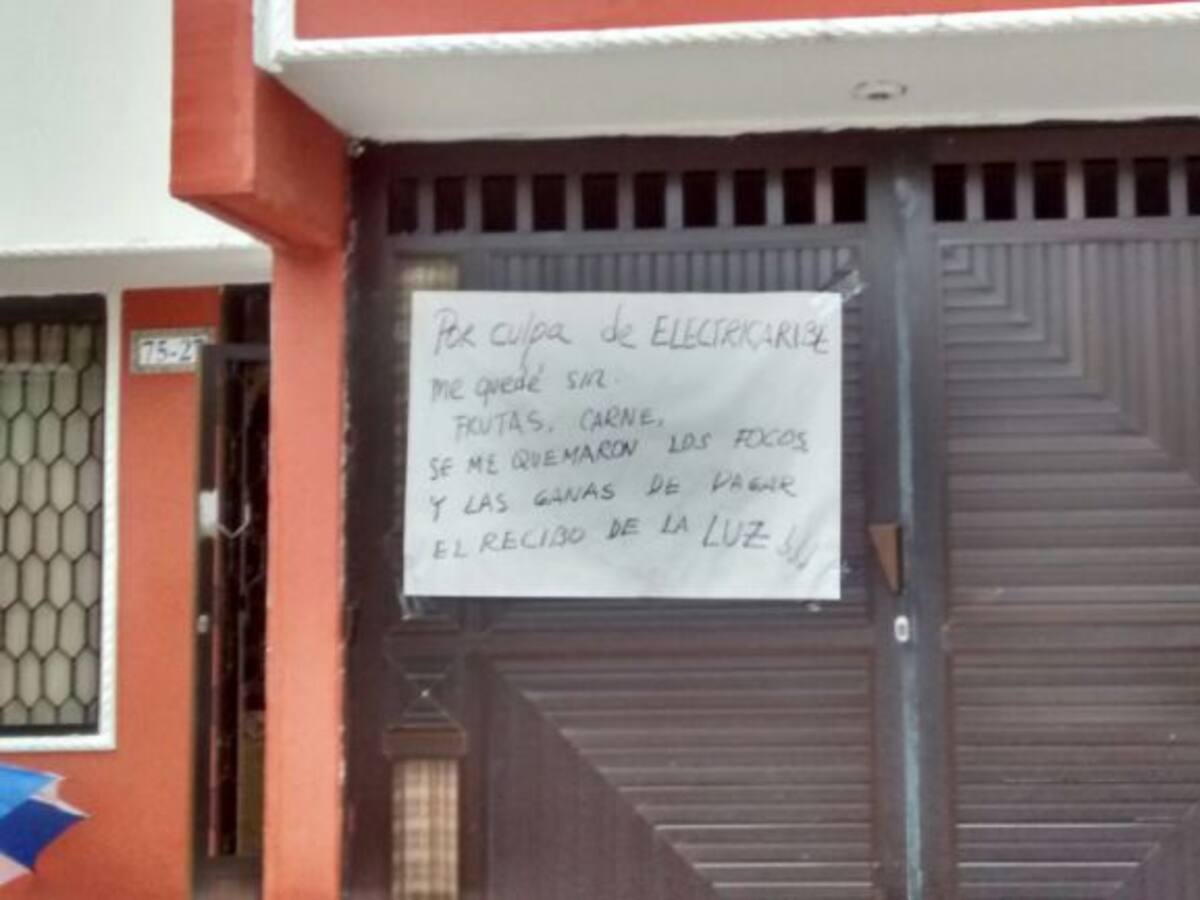 75-27
Por culpa de ELECTRICARIBE
me quedé sin.
FRUTAS, CARNE,
SE ME QUEMARON LOS FOCOS
Y LAS GANAS DE PAGAR
EL RECIBO DE LA LUZ !!!